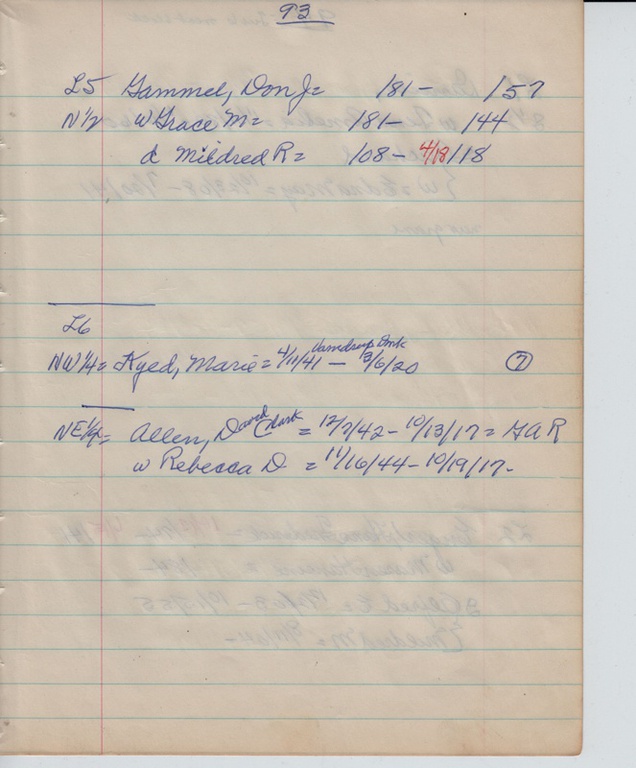 93
L5 Gammel, Don J= 181- 157
N½ w Grace M= 181- 144
d Mildred R= 108- 4/18/18
L6
NW¼= Kyed, Marie= 4/11/41 - 3/6/20 7
NE¼= Allen, David Clark = 12/7/42- 10/13/17= GAR
w Rebecca D = 11/16/44- 10/19/17-